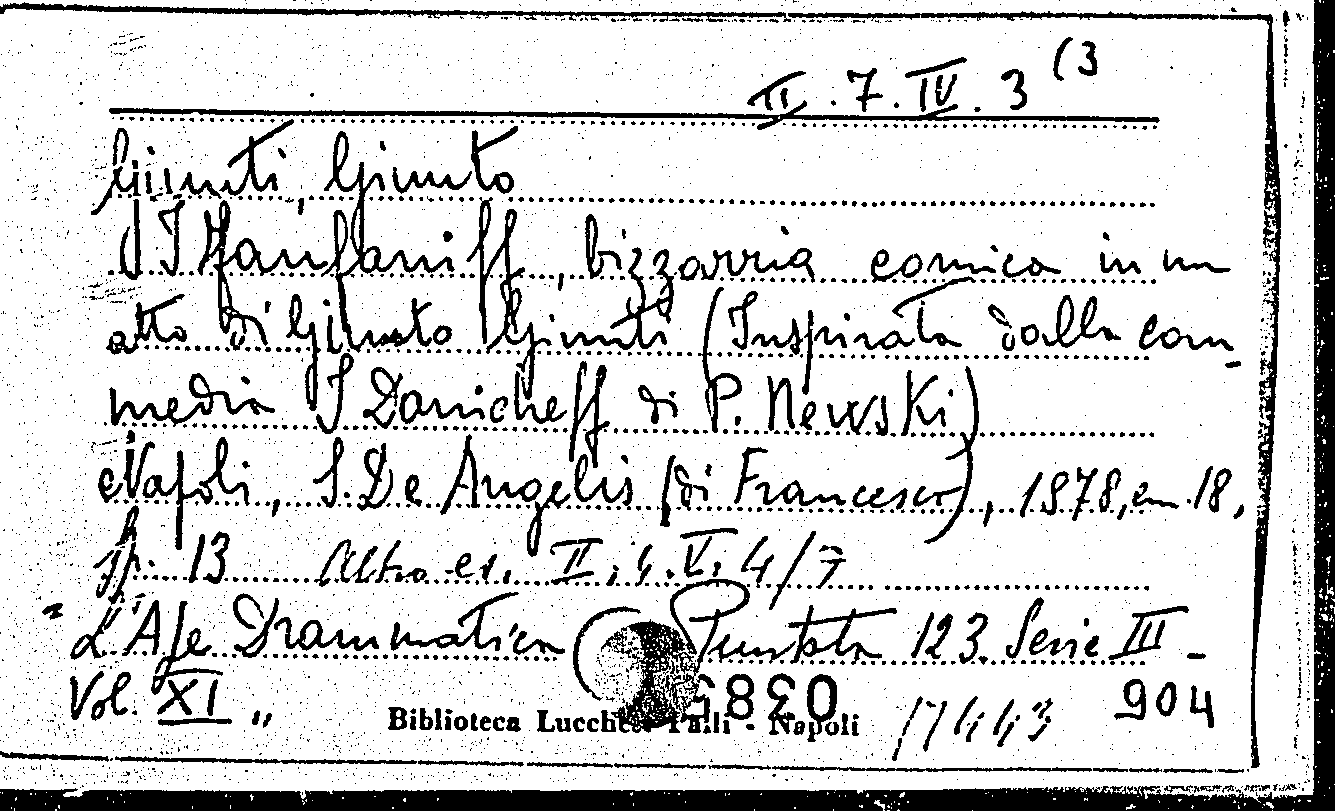 II. 7. IV. 3 (3
Giunti, Giusto
I Fanfaniff, bizzarria comica in un
atto di Giusto Giunti (Inspirata dalla com-
media I Danicheff di P. Newski)
Napoli, S. De Angelis (di Francesco), 1878, in 18,
pp. 13 Altro es. II. 4. V. 4/7
"L'Ape Drammatica Puntata 123. Serie III -
Vol. XI"
Biblioteca Lucchesi Palli - Napoli 17443 904